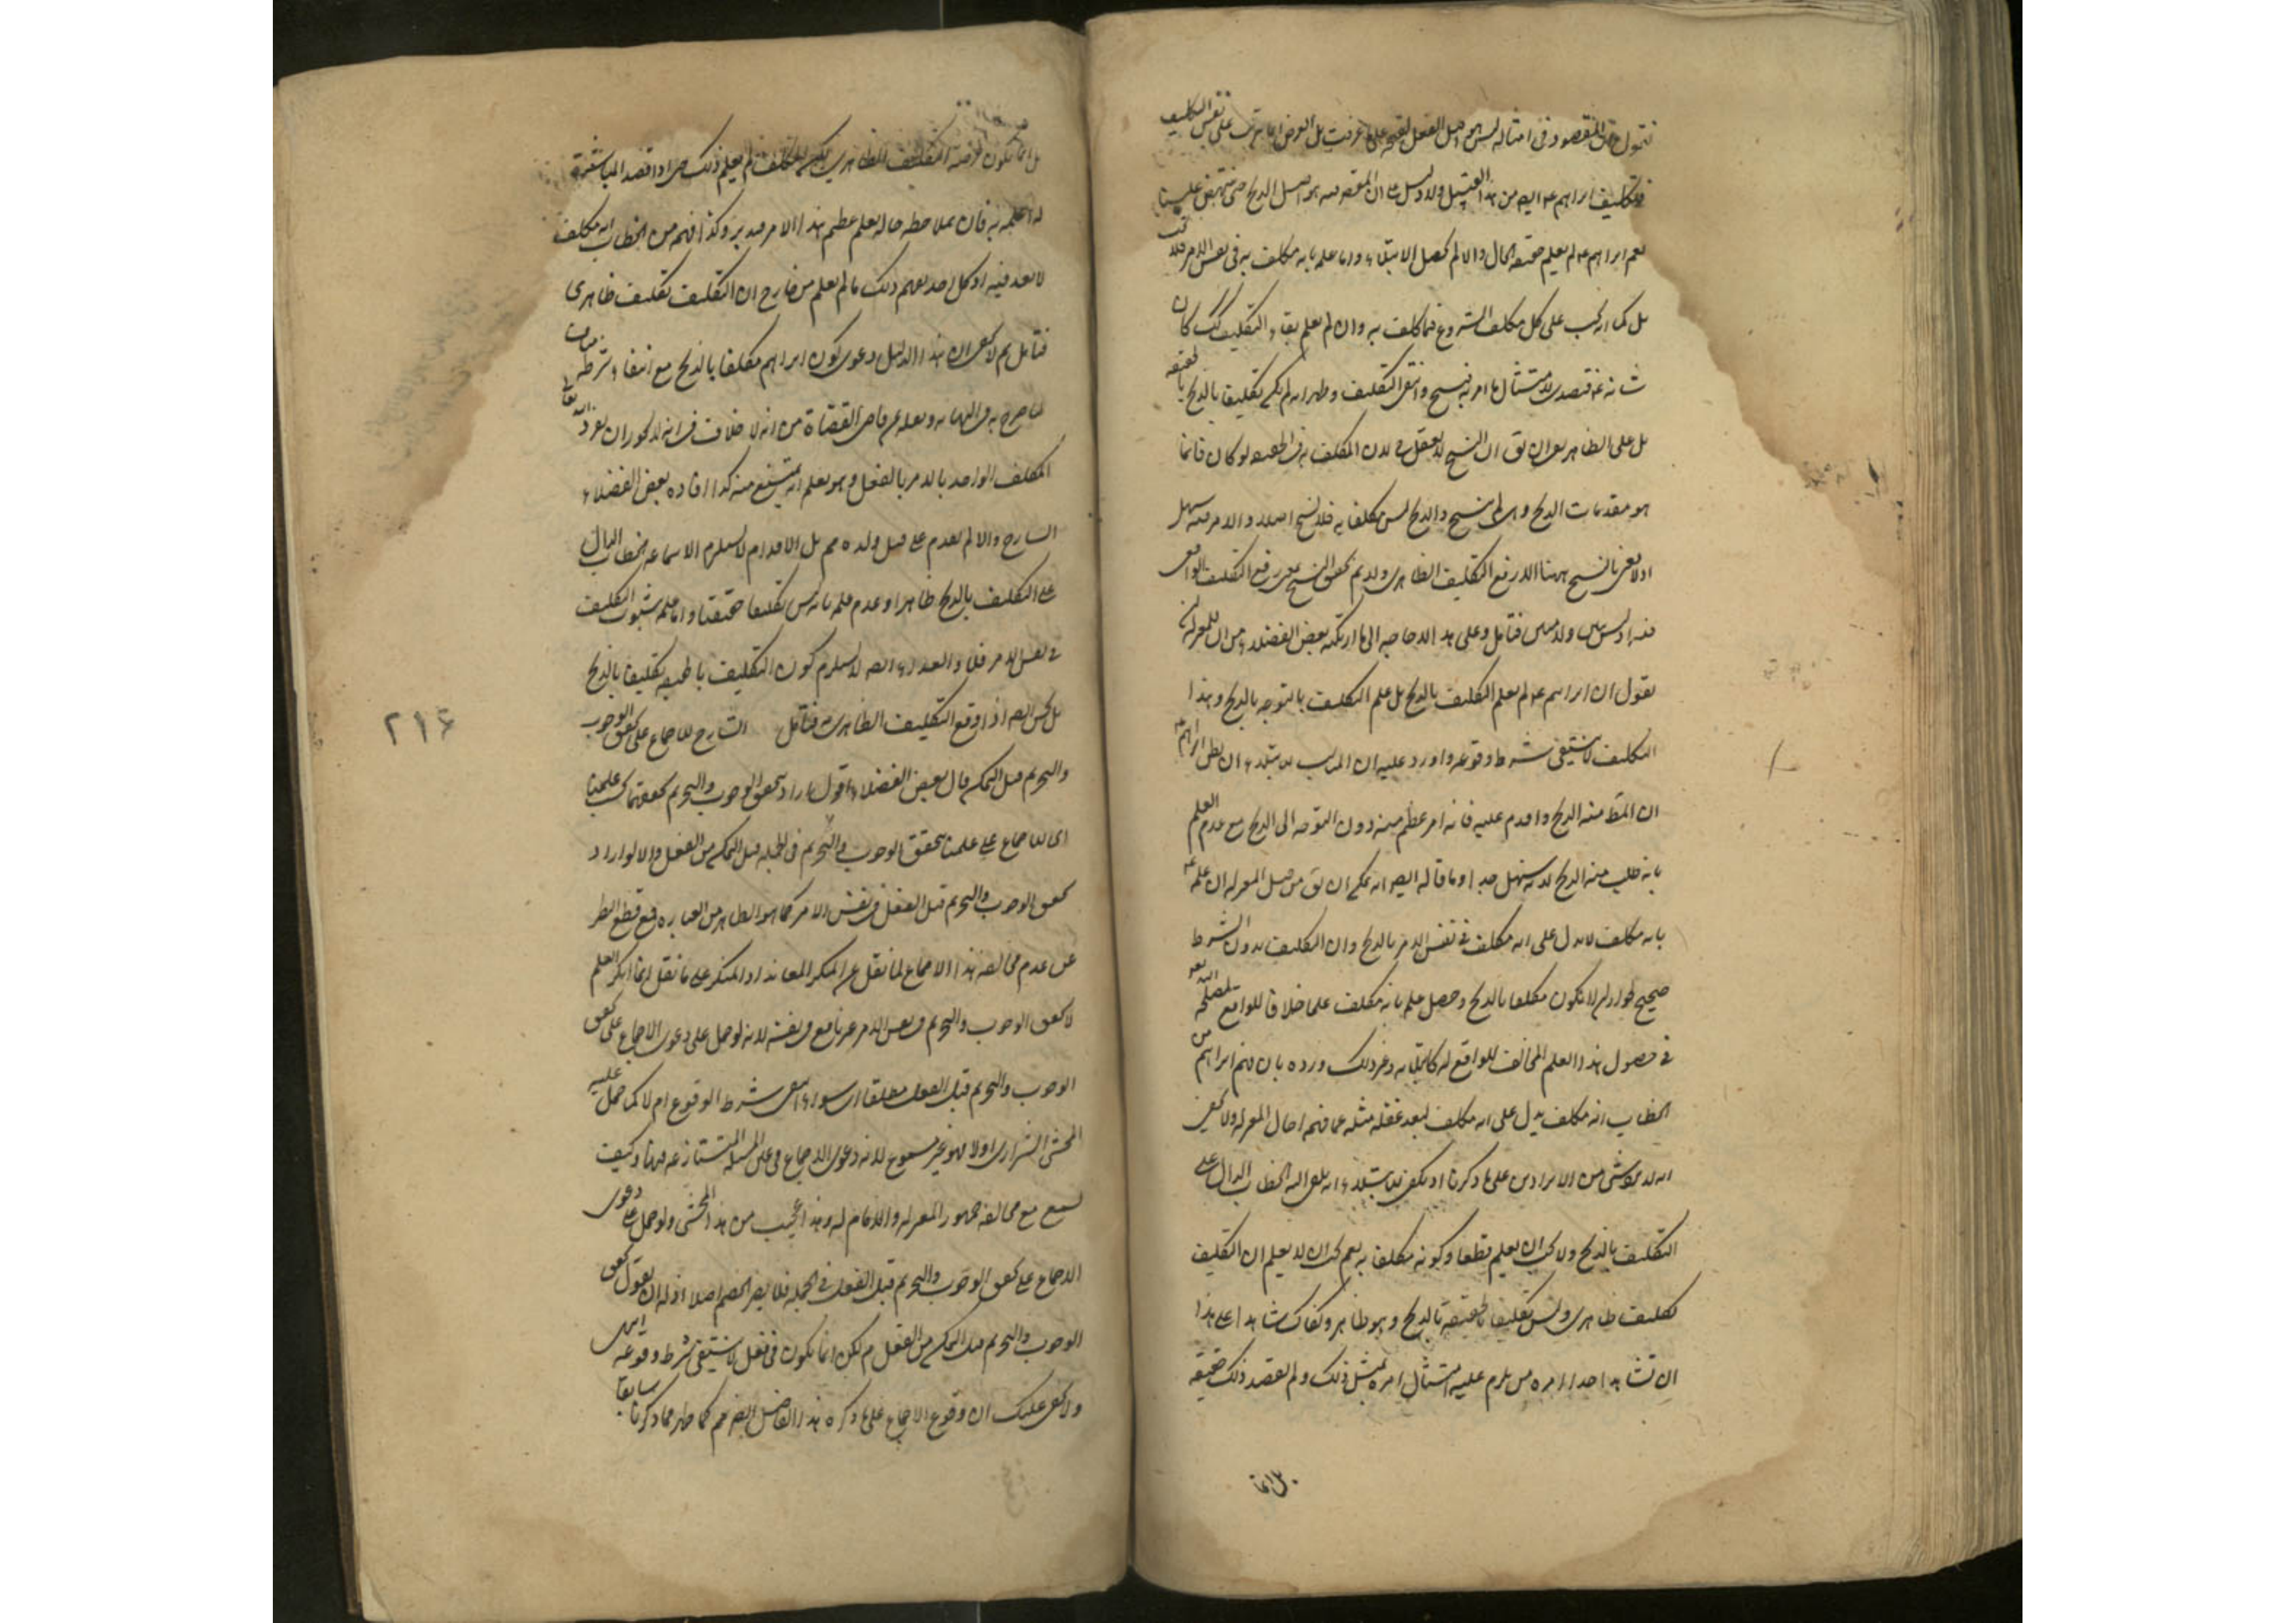 نقول المقصود فى امثاله ليس هو اصل الفعل لقبحه على ما عرفت بل الغرض انما يترتب على نفس التكليف
وتكليف ابراهيم ع ايضا من هذا القبيل ولا دليل على ان المقصود هو اصل الذبح حتى ينتهض علينا
نعم ابراهيم ع لم يعلم حقيقة الحال والا لم يحصل الابتلاء واما علمه بانه مكلف به فى نفس الامر فلا يجب
بل كما انه يجب على كل مكلف الشروع فيما كلف به وان لم يعلم بقاء التكليف كذلك كان
شانه ع قصدى لامتثال ما امر به فنسخ وانتفى التكليف وظهر انه لم يكن تكليفا بالذبح حقيقة
بل على الظاهر ان يق ان النسخ لا يعقل ح لان المكلف به فى الحقيقة لو كان فانما
هو مقدمات الذبح وهى لم ينسخ والذبح ليس مكلفا به فلا نسخ اصلا والامر فيه سهل
اذ لا نعنى بالنسخ ههنا الا رفع التكليف الظاهرى ولو لم يتحقق النسخ بمعنى رفع التكليف الواقعى
فيه اذ ليس فتامل وعلى هذا لا حاجة الى ما ارتكبه بعض الفضلاء من ان للمعتزلة ان
يقول ان ابراهيم ع لم يعلم التكليف بالذبح بل علم التكليف بالتوجه بالذبح وهذا
التكليف لا ينتفى شرط وقوعه واورد عليه ان المناسب للابتلاء ان يظن ابراهيم ع
ان المط منه الذبح واقدم عليه فانه امر عظيم منه دون التوجه الى الذبح مع عدم العلم
بانه طلب منه الذبح لانه سهل جدا وما قاله ايضا انه يمكن ان يق من قبل المعتزلة ان علمه ع
بانه مكلف لا يدل على انه مكلف فى نفس الامر بالذبح وان التكليف بدون الشرط
صحيح لجواز ان لا يكون مكلفا بالذبح وحصل علم بانه مكلف على خلاف الواقع لمصلحة
فى حصول هذا العلم المخالف للواقع له كالابتلاء وغير ذلك ورده بان فهم ابراهيم من
الخطاب انه مكلف يدل على انه مكلف لبعد غفلة مثله عما فهمه احاد المعتزلة ولا يخفى
انه لا يتوجه شئ من الايرادين على ما ذكرنا اذ يكفى للابتلاء انه يلقى اليه الخطاب الدال على
التكليف بالذبح ولا يجب ان يعلم قطعا وكونه مكلفا به نعم يجب ان لا يعلم ان التكليف
تكليف ظاهرى وليس تكليفا حقيقة بالذبح وهو ظاهر وكفاك شاهدا على هذا
ان تشاهد احدا امره من يلزم عليه امتثال امره بمثل ذلك ولم يقصد ذلك حقيقة
بل انما
بل انما يكون غرضه التكليف الظاهرى لكن المكلف لم يعلم ذلك حين اذا قصد المباشرة
له اعلمه به فان بملاحظة حاله يعلم عظم هذا الامر فتدبر وكذا فهمه من الخطاب انه مكلف
لا بعد فيه اذ كل احد يفهم ذلك ما لم يعلم من خارج ان التكليف تكليف ظاهرى
فتامل ثم لا يخفى ان هذا الدليل دعوى كون ابراهيم مكلفا بالذبح مع انتفاء شرطه مناف
لما صرح به فى النهاية ونقله عن قاضى القضاة من انه لا خلاف فى انه لا يجوز ان يفرد الله تعالى
المكلف الواحد بالامر بالفعل وهو يعلم انه يمتنع منه كذا افاده بعض الفضلاء
الشارح والا لم يقدم على قتل ولده مم بل الاقدام لا يستلزم الا سماعه الخطاب الدال
على التكليف بالذبح ظاهرا وعدم علمه بانه ليس تكليفا حقيقيا واما علمه بثبوت التكليف
فى نفس الامر فلا والفداء ايضا لا يستلزم كون التكليف بالحقيقة تكليفا بالذبح
بل يحسن ايضا اذا وقع التكليف الظاهرى به فتامل الشارح للاجماع على تحقق الوجوب
والتحريم قبل التمكن قال بعض الفضلاء اقول اراد بتحقق الوجوب والتحريم تحققهما بحسب علمنا
اى للاجماع على علمنا بتحقق الوجوب والتحريم فى الجملة قبل التمكن من الفعل والا لو اراد
تحقق الوجوب والتحريم قبل الفعل فى نفس الامر كما هو الظاهر من العبارة فمع قطع النظر
عن عدم مخالفة هذا الاجماع لما نقل عن المنكر المعاند اذ المنكر على ما نقل انما انكر العلم
لا تحقق الوجوب والتحريم فى نفس الامر غير نافع فى نفسه لانه لو حمل على دعوى الاجماع على تحقق
الوجوب والتحريم قبل الفعل مطلقا اى سواء انتفى شرط الوقوع ام لا كما حمل عليه
المحشى الشيرازى اولا فهو غير مسموع لانه دعوى الاجماع فى عين المسئلة المتنازعة فيها وكيف
تسمع مع مخالفة جمهور المعتزلة والامام له وهذا عجيب من هذا المحشى ولو حمل على دعوى
الاجماع على تحقق الوجوب والتحريم قبل الفعل فى الجملة فلا يضر الخصم اصلا اذ له ان يقول تحقق
الوجوب والتحريم قبل التمكن من الفعل مم لكن انما يكون فى فعل لا ينتفى شرط وقوعه انتهى
ولا يخفى عليك ان وقوع الاجماع على ما ذكره هذا الفاضل ايضا مم كما ظهر مما ذكرنا سابقا
٢١٤